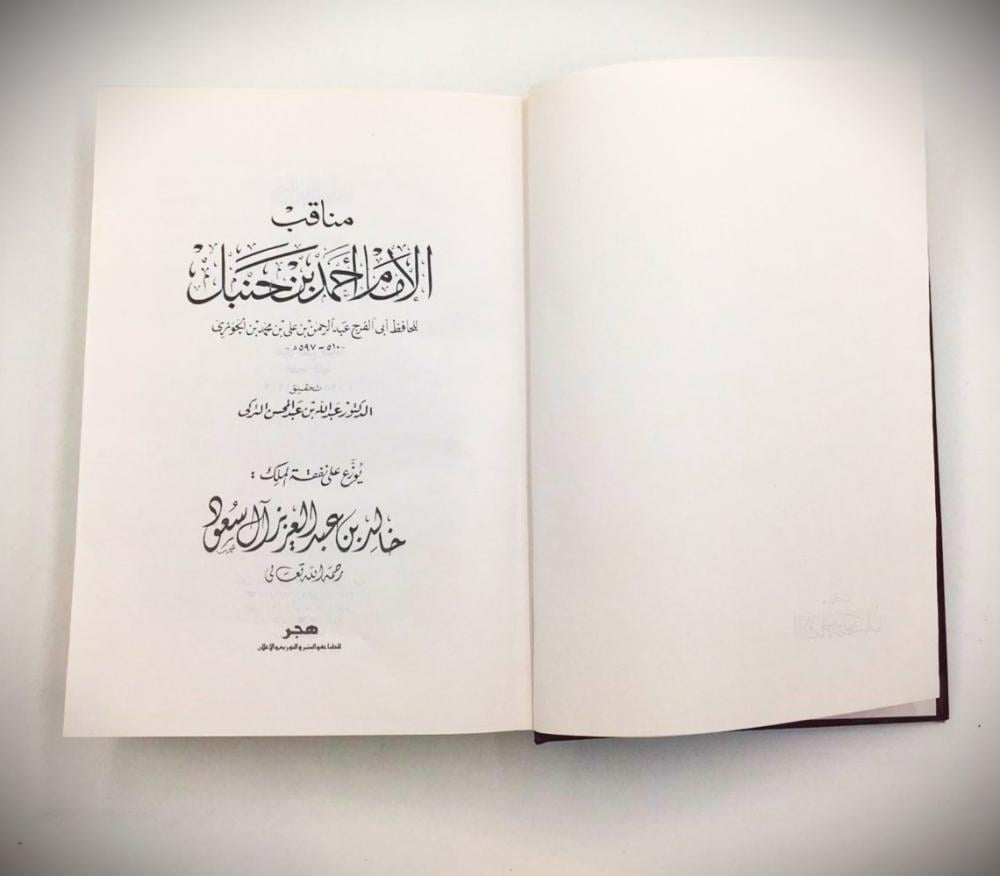 مناقب
الإمام أحمد بن حنبل
للحافظ أبى الفرج عبد الرحمن بن على بن محمد بن الجوزى
٥١٠ - ٥٩٧ هـ
تحقيق
الدكتور عبد الله بن عبد المحسن التركى
يُوزَّع على نفقة الملك :
خالد بن عبد العزيز آل سعود
رحمه الله تعالى
هجر
للطباعة والنشر والتوزيع والإعلان